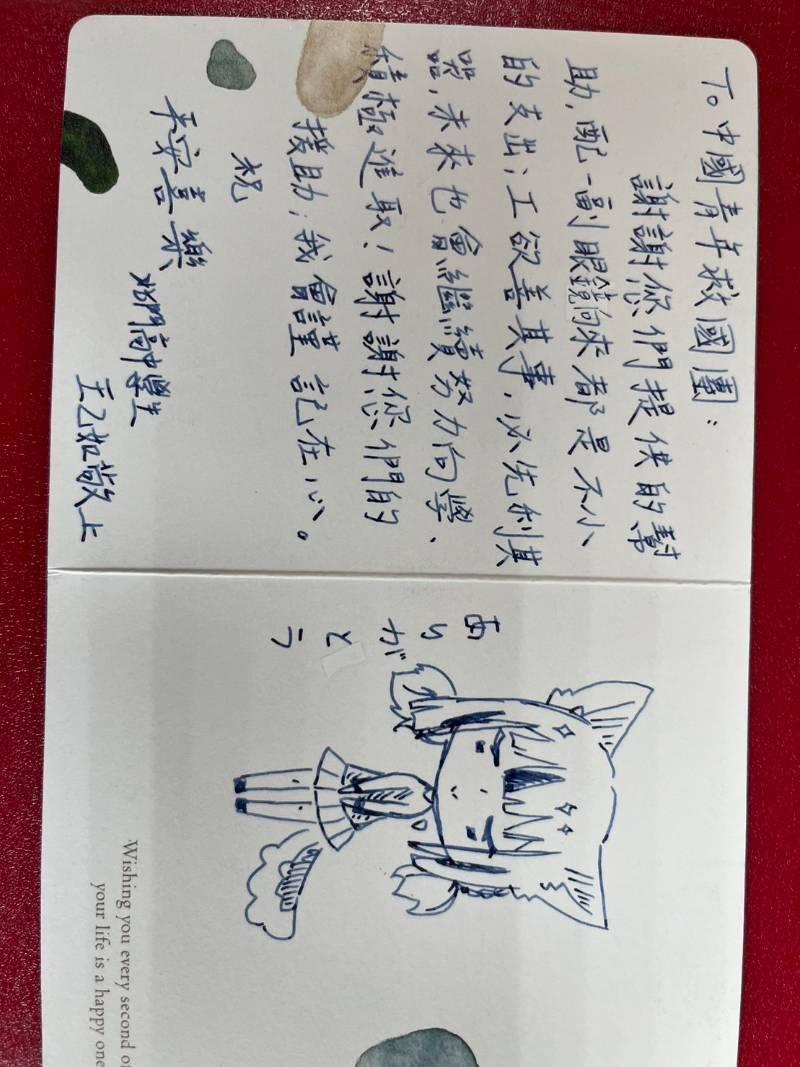 To 中國青年救國團：
謝謝您們提供的幫
助，配一副眼鏡向來都是不小
的支出；工欲善其事，必先利其
器，未來也會繼續努力向學、
積極進取！謝謝您們的
援助；我會謹記在心。
祝
平安喜樂
北門高中學生
敬上
ありがとう
Wishing you every second of
your life is a happy one